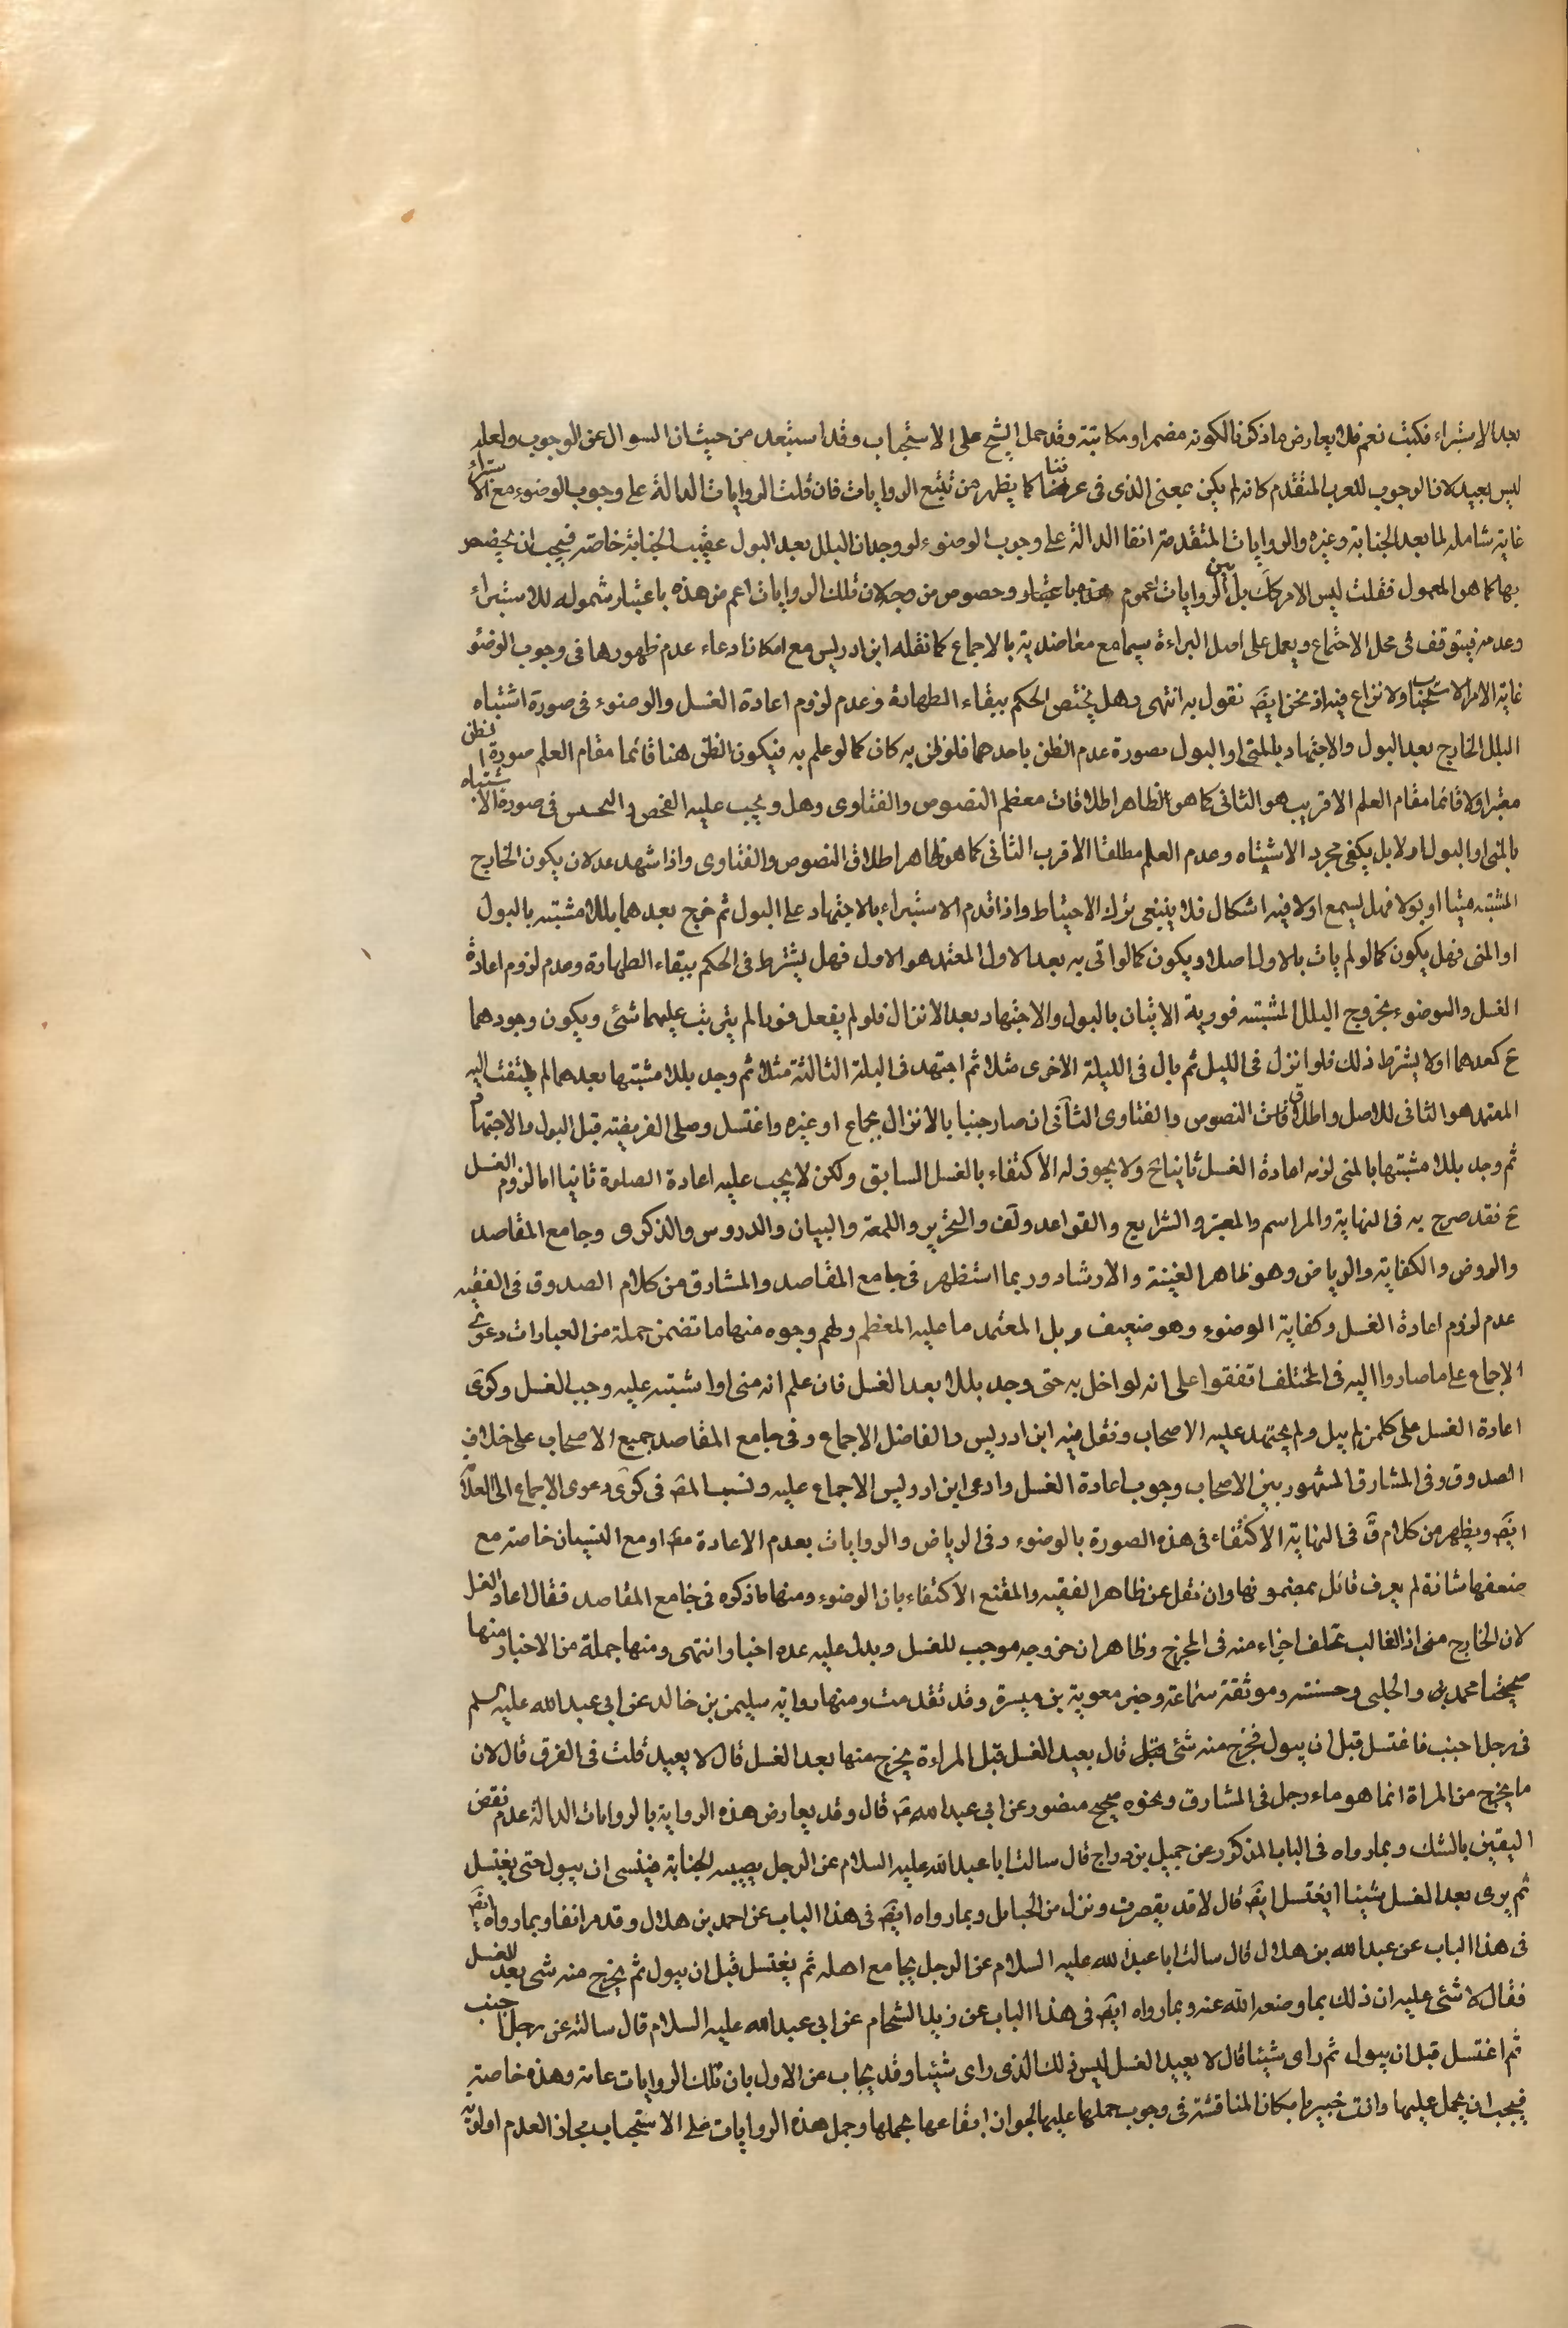 بعد الاستبراء فكتب نعم فلا يعارض ما ذكرنا لكونه مضمرا ومكاتبة وقد حمل الشيخ على الاستحباب وقد استبعد من حيث ان السوال عن الوجوب ولعله
ليس بعيد لان الوجوب للعرب المتقدم كانه لم يكن بمعنى الذى فى عرفنا كما يظهر من تتبع الروايات فان قلت الروايات الدالة على وجوب الوضوء مع الاستبراء
غاية شاملة لما بعد الجنابة وغيره والروايات المتقدمة انفا الدالة على وجوب الوضوء لو وجدان البلل بعد البول عقيب الجنابة خاصة فيجب ان يخصص
بها كما هو المعمول فقلت ليس الامر كك بل بين الروايات عموم وخصوص من وجه لان تلك الروايات اعم من هذه باعتبار شموله للاستبراء
وعدمه فيتوقف فى محل الاجتماع ويعمل على اصل البراءة سيما مع معاضديته بالاجماع كما نقله ابن ادريس مع امكان ادعاء عدم ظهورها فى وجوب الوضو
غاية الامر الاستحباب ولا نزاع فيه اذ نحن ايضَ نقول به انتهى وهل يختص الحكم ببقاء الطهارة وعدم لزوم اعادة الغسل والوضوء فى صورة اشتباه
البلل الخارج بعد البول والاجتهاد بالمنى او البول بصورة عدم الظن باحدهما فلو ظن به كان كما لو علم به فيكون الظن هنا قائما مقام العلم صورة الظن
معتبرا ولا قائما مقام العلم الاقرب هو الثانى كما هو الظاهر اطلاقات معظم النصوص والفتاوى وهل ويجب عليه الفحص و التجسس فى صورة الاشتباه
بالمنى او البول او لا بل يكفى مجرد الاشتباه وعدم العلم مطلقا الاقرب الثانى كما هو ظاهر اطلاق النصوص والفتاوى واذا شهد عدلان يكون الخارج
المشتبه منيا او بولا فهل يسمع او لا فيه اشكال فلا ينبغى ترك الاحتياط واذا قدم الاستبراء بالاجتهاد على البول ثم خرج بعدهما بللا مشتبه بالبول
او المنى فهل يكون كما لو لم يات بالاول اصلا او يكون كما لو اتى به بعد الاول المعتمد هو الاول فهل يشترط فى الحكم ببقاء الطهارة وعدم لزوم اعادة
الغسل والوضوء بخروج البلل المشتبه فورية الاتيان بالبول والاجتهاد بعد الانزال فلو لم يفعل فورا لم يترتب عليهما شئ ويكون وجودهما
ح كعدهما او لا يشترط ذلك فلو انزل فى الليل ثم بال فى الليلة الاخرى مثلا ثم اجتهد فى الليلة الثالثة مثلا ثم وجد بللا مشتبها بعدهما لم يلتفت اليه
المعتمد هو الثانى للاصل واطلاقات النصوص والفتاوى الثانى ان صار جنبا بالانزال بجماع او غيره واغتسل وصلى الفريضة قبل البول والاجتهاد
ثم وجد بللا مشتبها بالمنى لزمه اعادة الغسل ثانيا ح ولا يجوز له الاكتفاء بالغسل السابق ولكن لا يجب عليه اعادة الصلوة ثانيا اما لزوم الغسل
ح فقد صرح به فى النهاية والمراسم والمعتبر والشرايع والقواعد ولف والتحرير واللمعة والبيان والدروس والذكرى وجامع المقاصد
والروض والكفاية والرياض وهو ظاهر الغنية والارشاد وربما استظهر فى جامع المقاصد والمشارق من كلام الصدوق فى الفقيه
عدم لزوم اعادة الغسل وكفاية الوضوء وهو ضعيف و بل المعتمد ما عليه المعظم ولهم وجوه منها ما تضمن جملة من العبارات دعوى
الاجماع على ما صاروا اليه فى المختلف اتفقوا على انه لو اخل به حتى وجد بللا بعد الغسل فان علم انه منى او اشتبه عليه وجب الغسل وكرى
اعادة الغسل على كل من لم يبل ولم يجتهد عليه الاصحاب ونقل فيه ابن ادريس والفاضل الاجماع وفى جامع المقاصد جميع الاصحاب على خلاف
الصدوق وفى المشارق المشهور بين الاصحاب وجوب اعادة الغسل وادعى ابن ادريس الاجماع عليه ونسب المصَ فى كرى دعوى الاجماع الى العلامة
ايضَ ويظهر من كلام قَ فى النهاية الاكتفاء فى هذه الصورة بالوضوء وفى الرياض والروايات بعدم الاعادة مطَ او مع النسيان خاصة مع
ضعفها شاذة لم يعرف قائل بمضمونها وان نقل عن ظاهر الفقيه والمقنع الاكتفاء بان الوضوء ومنها ما ذكره فى جامع المقاصد فقال اعاد الغسل
لان الخارج منى اذ الغالب تخلف اجزاء منه فى المخرج وظاهر ان خروجه موجب للغسل ويدل عليه عده اخبار انتهى ومنها جملة من الاخبار منها
صحيحتا محمد بن والحلبى وحسنته وموثقة سماعة وخبر معوية بن ميسرة وقد تقدمت ومنها رواية سليمن بن خالد عن ابى عبد الله عليه السلم
فى رجل اجنب فاغتسل قبل ان يبول فخرج منه شئ قال يعيد الغسل قبل المراءة يخرج منها بعد الغسل قال لا يعيد قلت فى الفرق قال لان
ما يخرج من المراة انما هو ماء رجل فى المشارق ونحوه صحيح منصور عن ابى عبد الله عَ قال وقد يعارض هذه الرواية بالروايات الدالة عدم نقض
اليقين بالشك وبما رواه فى الباب المذكور عن جميل بن دراج قال سالت ابا عبد الله عليه السلام عن الرجل يصيبه الجنابة فينسى ان يبول حتى يغتسل
ثم يرى بعد الغسل شيئا ايغتسل ايضَ قال لا قد يقصرت ونزل من الحبايل وبما رواه ايضَ فى هذا الباب عن احمد بن هلال وقد مر انفا وبما رواه ايضَ
فى هذا الباب عن عبد الله بن هلال قال سالت ابا عبد الله عليه السلام عن الرجل يجامع اهله ثم يغتسل قبل ان يبول ثم يخرج منه شى بعد الغسل
فقال لا شئ عليه ان ذلك بما وضعه الله عنه وبما رواه ايضَ فى هذا الباب عن زيد الشحام عن ابى عبد الله عليه السلام قال سالته عن رجل اجنب
ثم اغتسل قبل ان يبول ثم راى شيئا قال لا يعيد الغسل ليس ذلك الذى راى شيئا وقد يجاب عن الاول بان تلك الروايات عامة وهذه خاصة
فيجب ان يحمل عليها وانت خبير بامكان المناقشة فى وجوب حملها عليها لجواز ابقاءها بحملها وحمل هذه الروايات على الاستحباب مجاز العدم اولوية